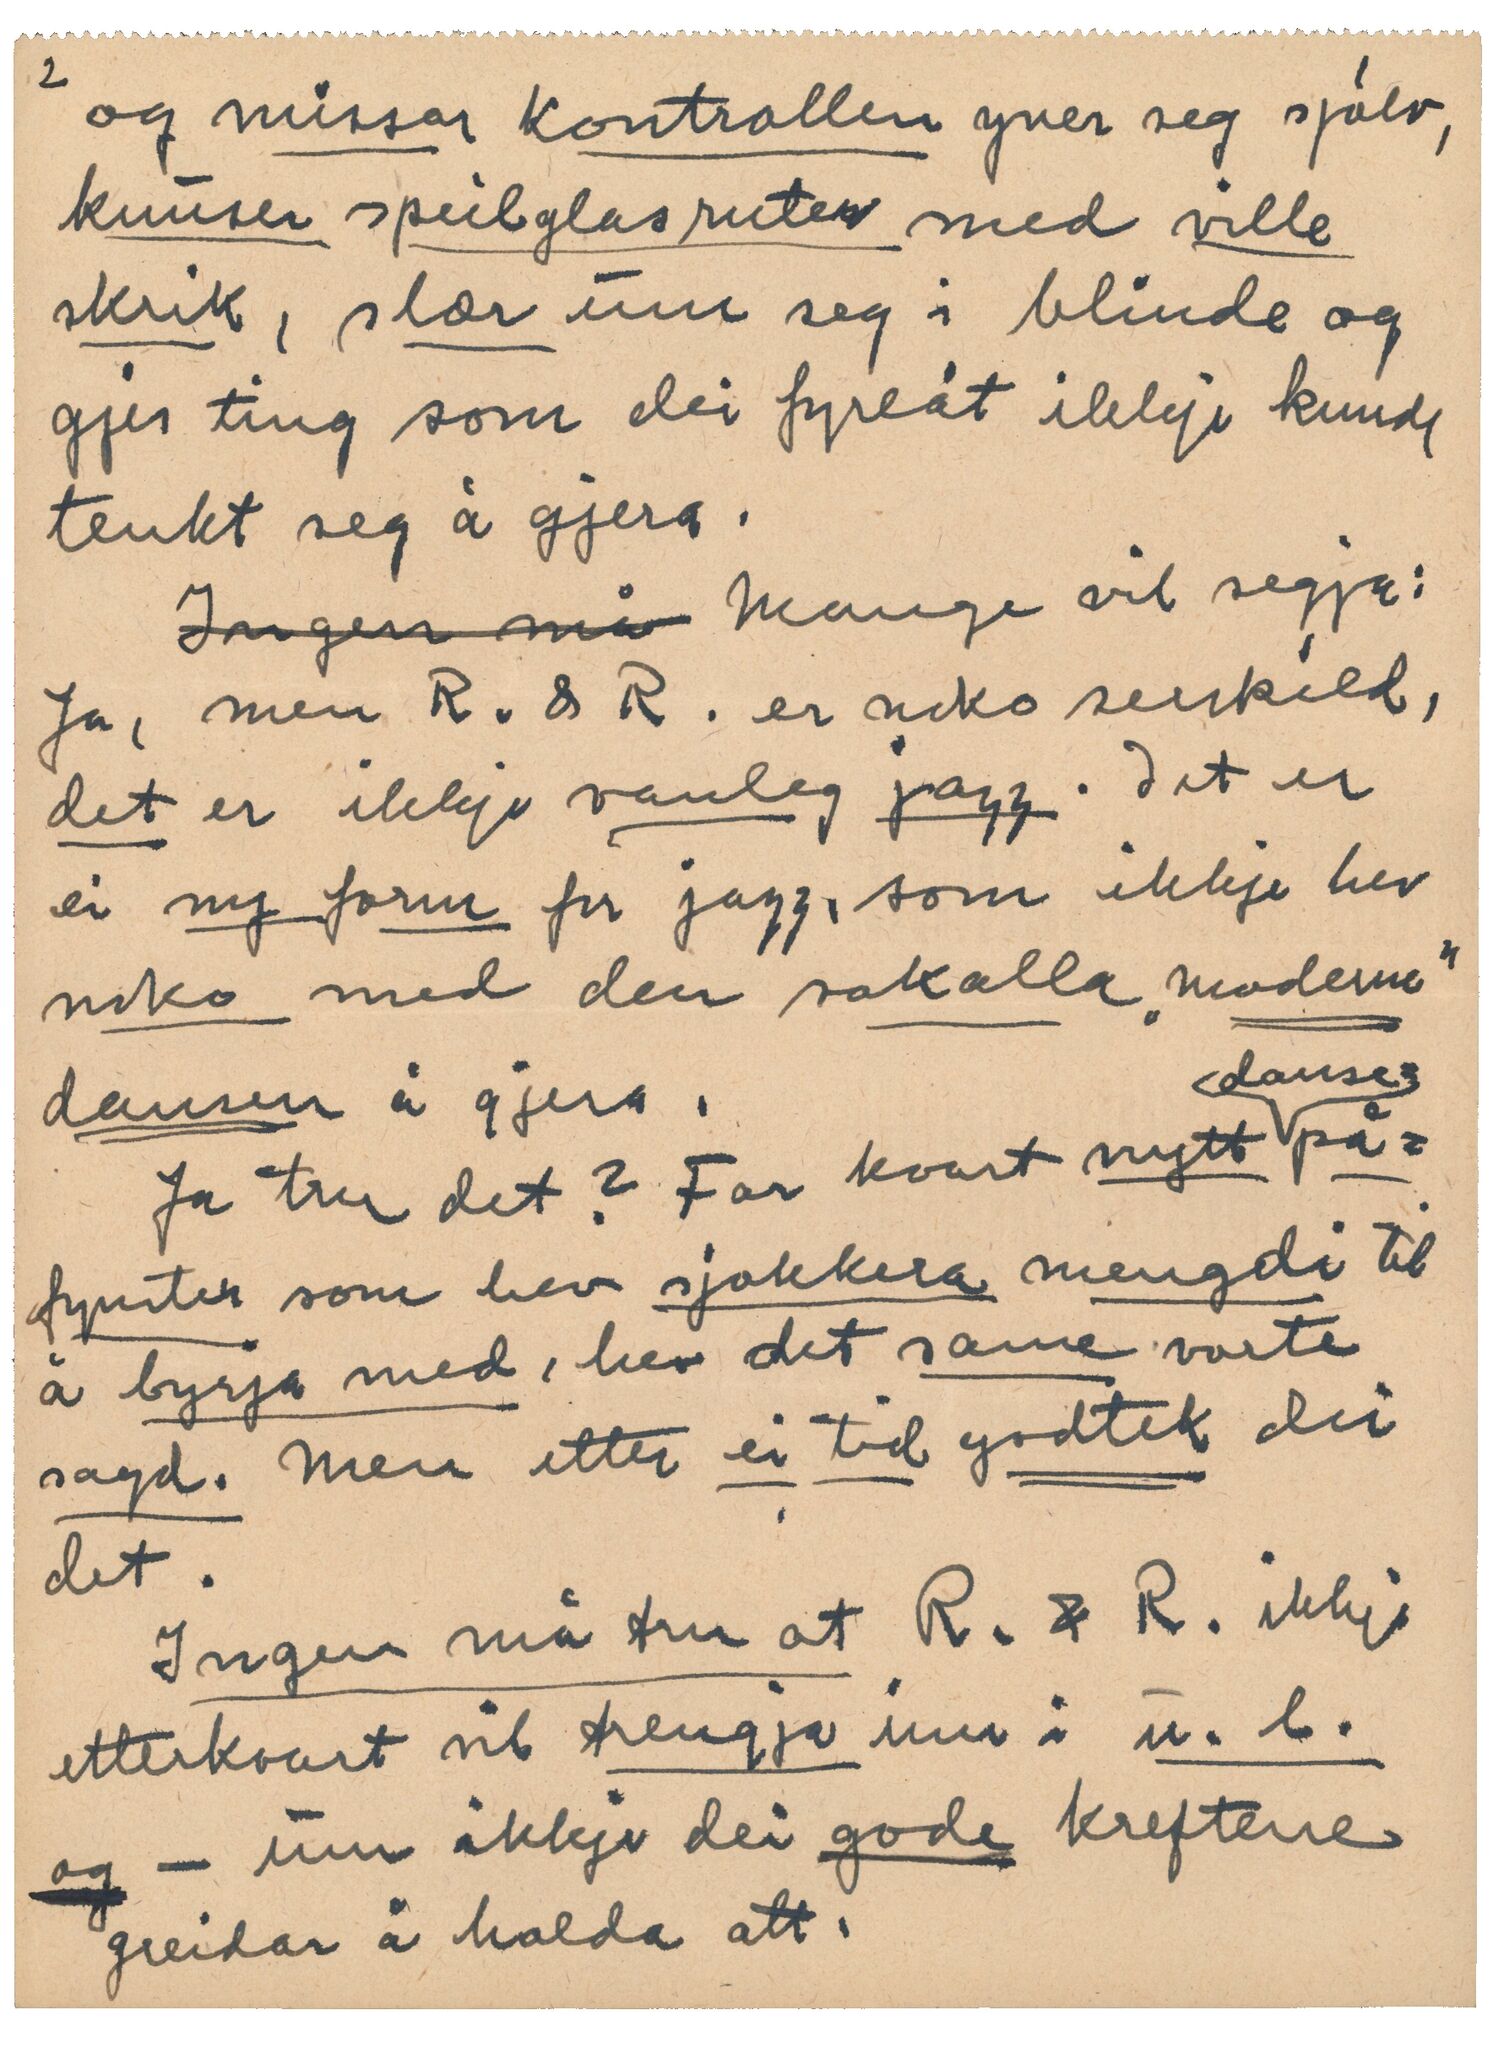 2
og missar kontrollen yver seg sjølv,
knuser speilglasruter med ville
skrik, slær um seg i blinde og
gjer ting som dei fyreåt ikkje kunde
tenkt seg å gjera.
Ingen må Mange vil segja:
Ja, men R. & R. er noko serskild,
det er ikkje vanleg jazz. Det er
ei ny form for jazz, som ikkje hev
noko med den sokalla „moderne"
dansen å gjera.
danse=
Ja tru det? For kvart nytt på=
fynster som hev sjokkera mengdi til
å byrja med, hev det same vorte
sagd. Men etter ei tid godtek dei
det.
Ingen må tru at R. & R. ikkje
etterkvart vil trengja inn i u. l.
og — um ikkje dei gode kreftene
greidar å halda att.